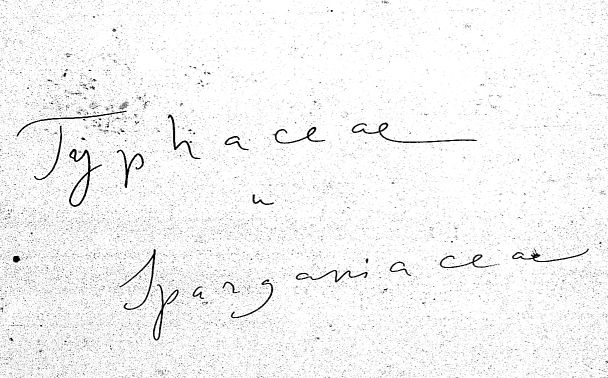 Typhaceae
u
Sparganiaceae